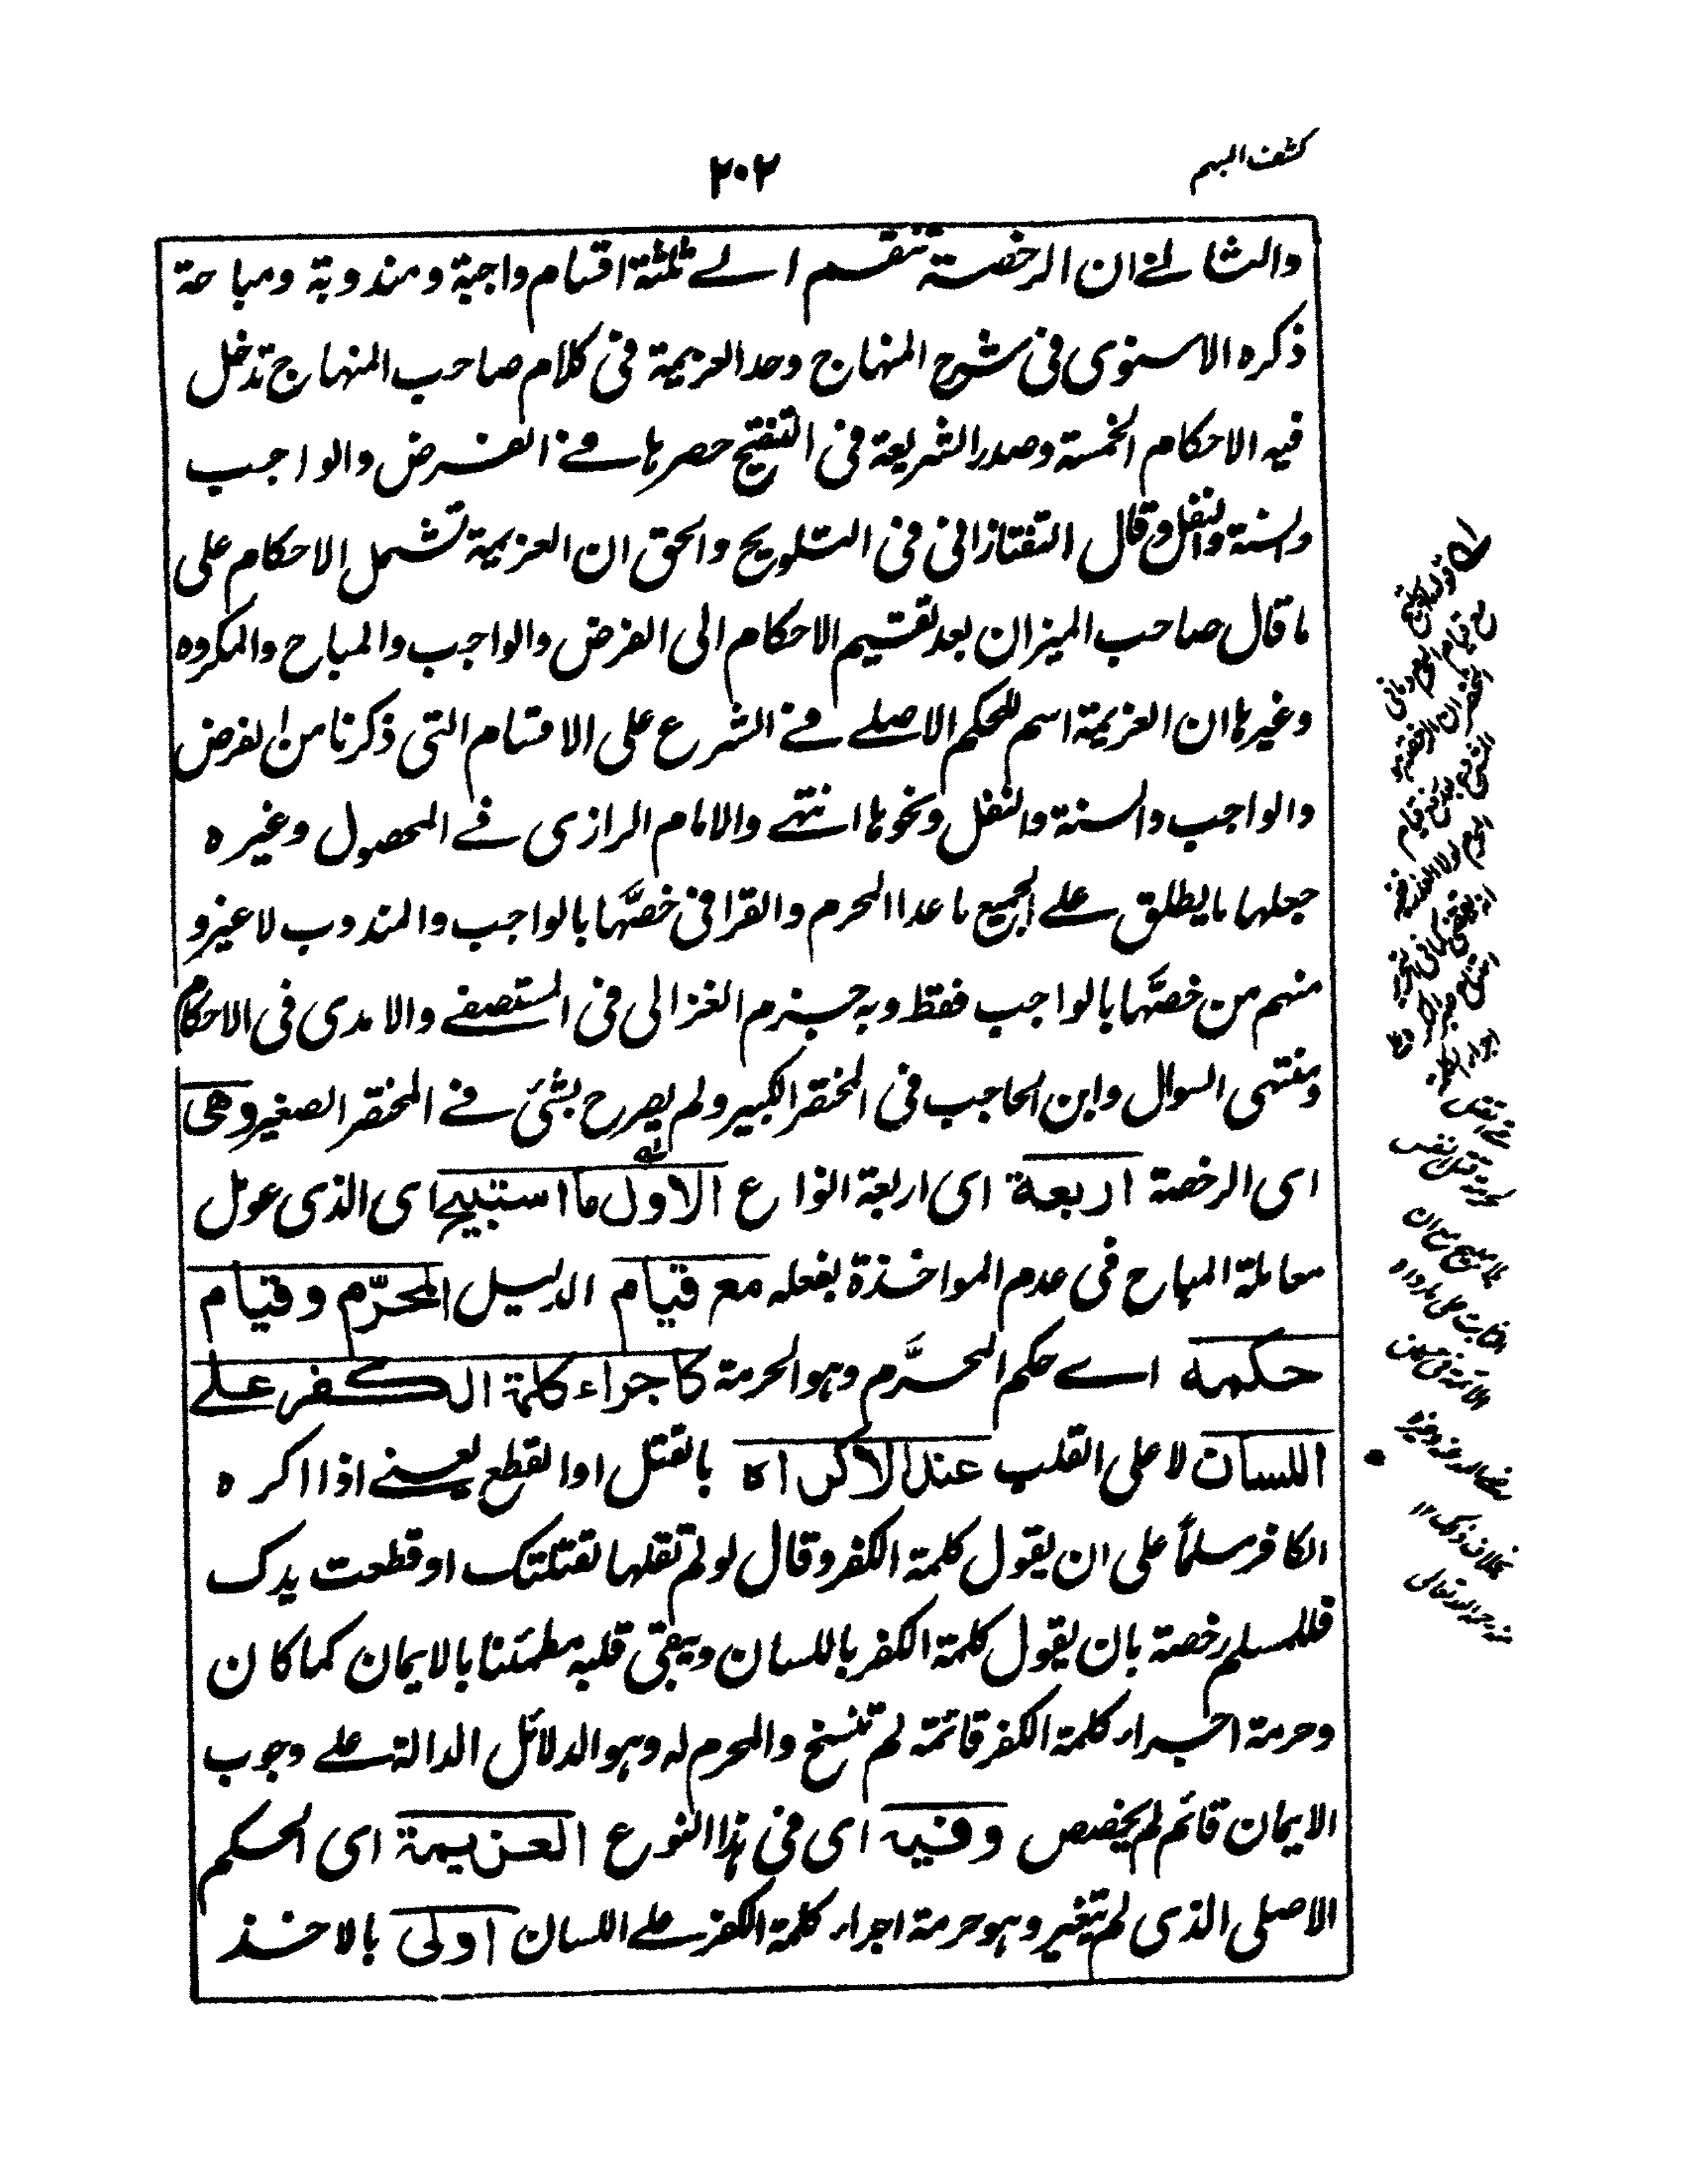 كشف المبهم
٢٠٢
والثاني ان الرخصة تنقسم الے ثلثة اقسام واجبة ومندوبة ومباحة
ذكره الاسنوى فى شرح المنهاج وحد العزيمة فى كلام صاحب المنهاج تدخل
فيه الاحكام الخمسة وصدر الشريعة فى التنقيح حصرها فے الفرض والواجب
والسنة والنفل وقال التفتازانى فى التلويح والحق ان العزيمة تشمل الاحكام على
ما قال صاحب الميزان بعد تقسيم الاحكام الى الفرض والواجب والمباح والمكروه
وغيرها ان العزيمة اسم للحكم الاصلے فے الشرع على الاقسام التى ذكرنا من الفرض
والواجب والسنة والنفل ونحوها انتهے والامام الرازى فے المحصول وغيره
جعلها ما يطلق علے الجميع ما عدا المحرم والقرافى خصَّها بالواجب والمندوب لا غير و
منهم من خصَّها بالواجب فقط وبه جزم الغزالى فى المستصفے والامدى فى الاحكام
ومنتهى السوال وابن الحاجب فى المختصر الكبير ولم يصرح بشئ فے المختصر الصغير وهى
اى الرخصة اربعة اى اربعة انواع الاول ما استبيح اى الذى عومل
معاملة المباح فى عدم المواخذة بفعله مع قيام الدليل المحرّم وقيام
حكمه اے حكم المحرَّم وهو الحرمة كاجراء كلمة الكفر علے
اللسان لا على القلب عند الاكراه بالقتل او القطع يعنے اذا اكره
الكافر مسلماً على ان يقول كلمة الكفر وقال لو لم تقلها لقتلتك او قطعت يدك
فللمسلم رخصة بان يقول كلمة الكفر باللسان ويبقى قلبه مطمئنا بالايمان كما كان
وحرمة اجراء كلمة الكفر قائمة لم تنسخ والمحرم له وهو الدلائل الدالة علے وجوب
الايمان قائم لم يخصص وفيه اى فى هذا النوع العزيمة اى الحكم
الاصلى الذى لم يتغير وهو حرمة اجراء كلمة الكفر علے اللسان اولى بالاخذ